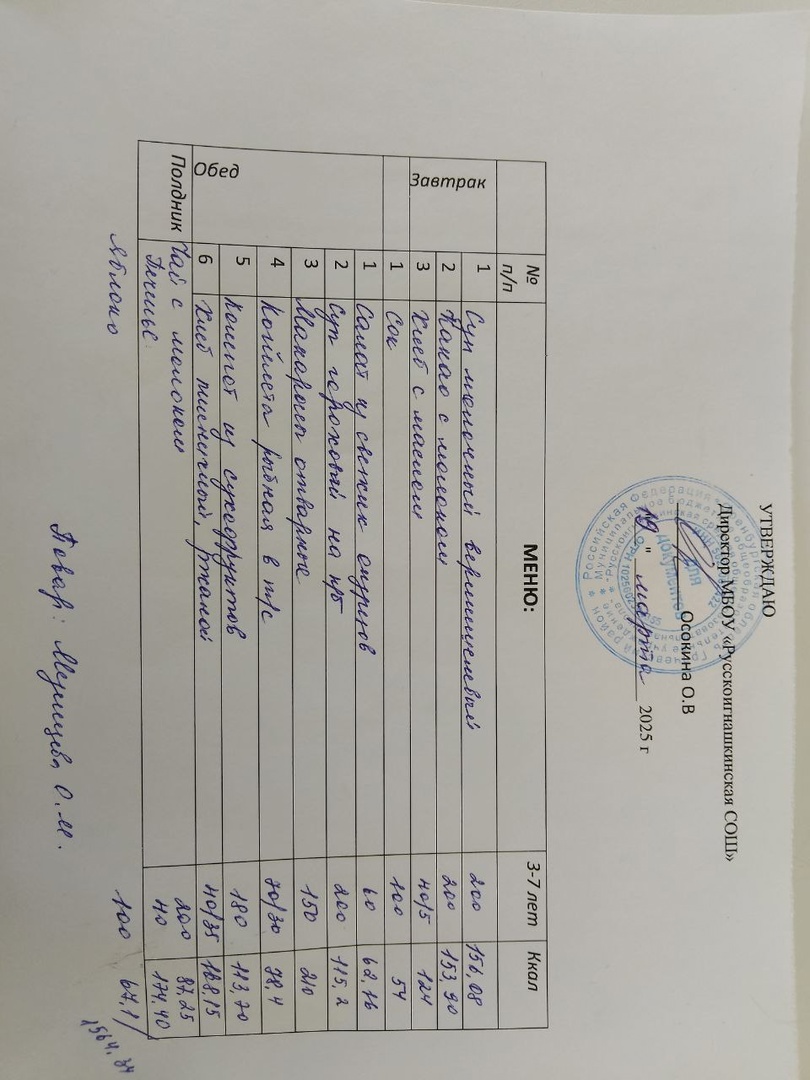 УТВЕРЖДАЮ
Директор МБОУ «Русскоигнашкинская СОШ»
Осокина О.В
19 " марта 2025 г
МЕНЮ:
№ п/п 3-7 лет Ккал
Завтрак
1 Суп молочный вермишелевый 200 156,08
2 Какао с молоком 200 153,90
3 Хлеб с маслом 40/5 124
1 Сок 100 54
Обед
1 Салат из свежих огурцов 60 62,16
2 Суп гороховый на м/б 200 115,2
3 Макароны отварные 150 210
4 Котлета рыбная в т/с 70/30 78,4
5 Компот из сухофруктов 180 113,70
6 Хлеб пшеничный, ржаной 40/35 168,15
Полдник
Чай с молоком 200 87,25
Печенье 40 174,40
Яблоко 100 67,1
1564,34
Повар: О.М.